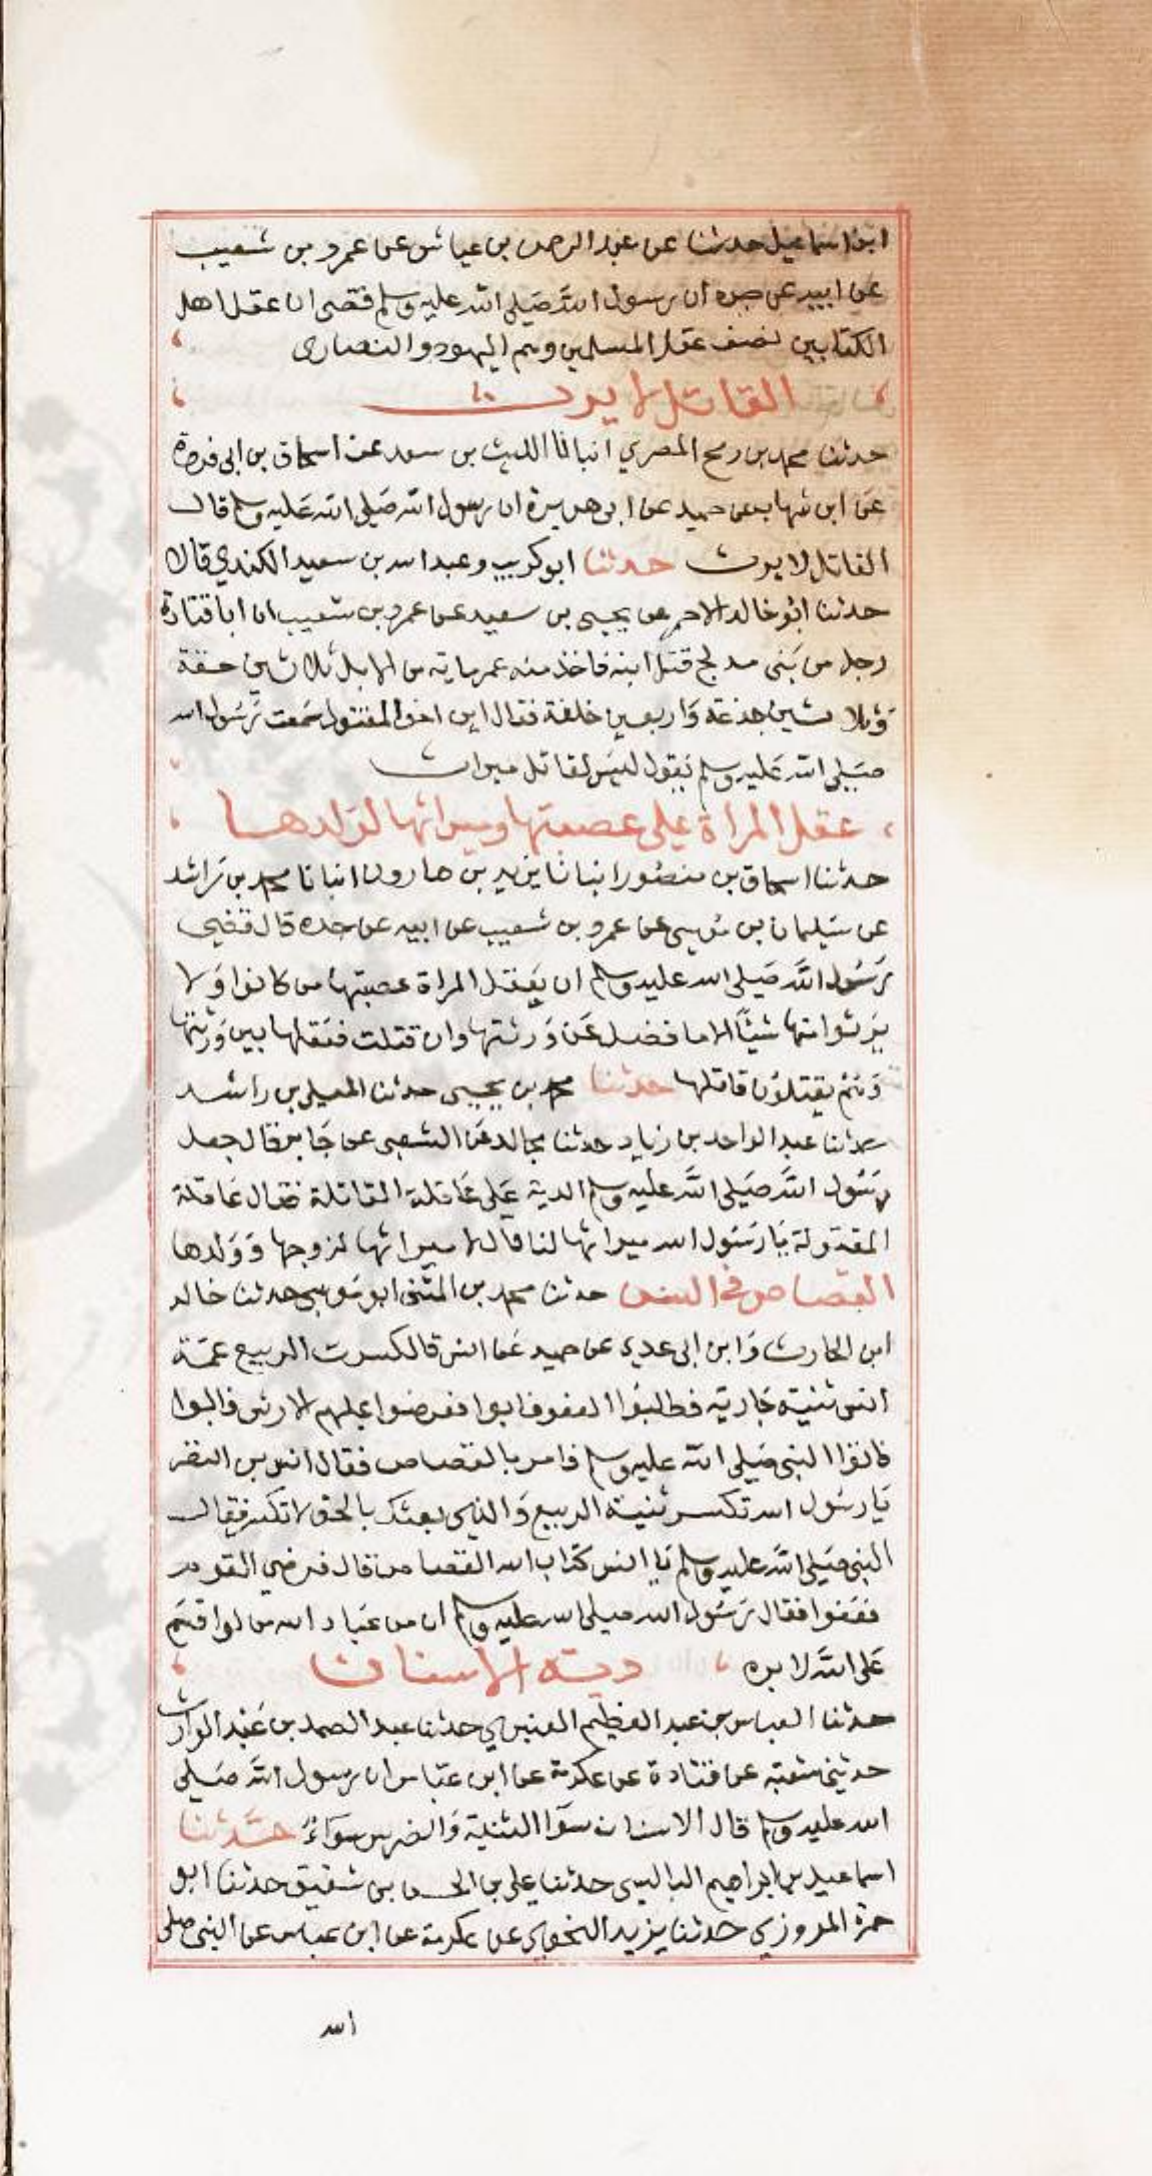 ابن اسماعيل حدثنا عن عبد الرحمن بن عياش عن عمرو بن شعيب
عن ابيه عن جده ان رسول الله صلى الله عليه وسلم قضى ان عقل اهل
الكتابين نصف عقل المسلمين وهم اليهود والنصارى
القاتل لا يرث
حدثنا محمد بن رمح المصري انبانا الليث بن سعد عن اسحاق بن ابي فروة
عن ابن شهاب عن حميد عن ابي هريرة ان رسول الله صلى الله عليه وسلم قال
القاتل لا يرث حدثنا ابو كريب وعبد الله بن سعيد الكندي قالا
حدثنا ابو خالد الاحمر عن يحيى بن سعيد عن عمرو بن شعيب ان ابا قتادة
رجل من بني مدلج قتل ابنه فاخذ منه عمر مايه من الابل ثلاثين حقة
وثلاثين جذعة واربعين خلفة فقال ابن اخو المقتول سمعت رسول الله
صلى الله عليه وسلم يقول ليس لقاتل ميراث
عقل المراة على عصبتها وميراثها لولدها
حدثنا اسحاق بن منصور انبانا يزيد بن هارون انبانا محمد بن راشد
عن سليمان بن موسى عن عمرو بن شعيب عن ابيه عن جده قال قضى
رسول الله صلى الله عليه وسلم ان يعقل المراة عصبتها من كانوا ولا
يرثوا منها شيئا الا ما فضل عن ورثتها وان قتلت فعقلها بين ورثتها
وهم يقتلون قاتلها حدثنا محمد بن يحيى حدثنا المعلى بن راشد
حدثنا عبد الواحد بن زياد حدثنا مجالد عن الشعبي عن جابر قال جعل
رسول الله صلى الله عليه وسلم الدية على عاقلة القاتلة فقال عاقلة
المقتولة يا رسول الله ميراثها لنا قال لا ميراثها لزوجها وولدها
القصاص في السن حدثنا محمد بن المثنى ابو موسى حدثنا خالد
ابن الحارث وابن ابي عدي عن حميد عن انس قال كسرت الربيع عمة
انس ثنية جارية فطلبوا العفو فابوا فعرضوا عليهم الارش فابوا
فاتوا النبي صلى الله عليه وسلم فامر بالقصاص فقال انس بن النضر
يا رسول الله تكسر ثنية الربيع والذي بعثك بالحق لا تكسر فقال
النبي صلى الله عليه وسلم يا انس كتاب الله القصاص قال فرضي القوم
فعفوا فقال رسول الله صلى الله عليه وسلم ان من عباد الله من لو اقسم
على الله لابره دية الاسنان
حدثنا العباس بن عبد العظيم العنبري حدثنا عبد الصمد بن عبد الوارث
حدثني شعبة عن قتادة عن عكرمة عن ابن عباس ان رسول الله صلى
الله عليه وسلم قال الاسنان سوا الثنية والضرس سواء حدثنا
اسماعيل بن ابراهيم البالسي حدثنا علي بن الحسن بن شقيق حدثنا ابو
حمزة المروزي حدثنا يزيد النحوي عن عكرمة عن ابن عباس عن النبي صلى
الله